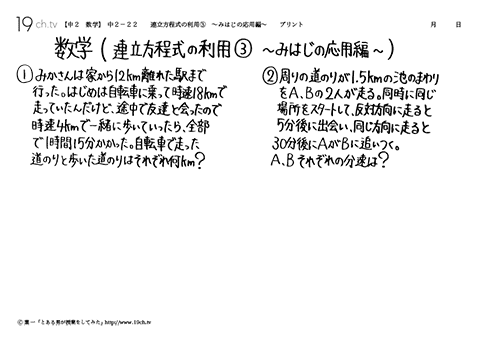 19ch.tv 【中2 数学】 中2-22 連立方程式の利用③ ~みはじの応用編~ プリント 月 日
数学(連立方程式の利用③ ~みはじの応用編~)
①みかさんは家から12km離れた駅まで
行った。はじめは自転車に乗って時速18kmで
走っていたんだけど、途中で友達と会ったので
時速4kmで一緒に歩いていったら、全部
で1時間15分かかった。自転車で走った
道のりと歩いた道のりはそれぞれ何km?
②周りの道のりが1.5kmの池のまわり
をA、Bの2人が走る。同時に同じ
場所をスタートして、反対方向に走ると
5分後に出会い、同じ方向に走ると
30分後にAがBに追いつく。
A、Bそれぞれの分速は?
© 葉一「とある男が授業をしてみた」http://www.19ch.tv